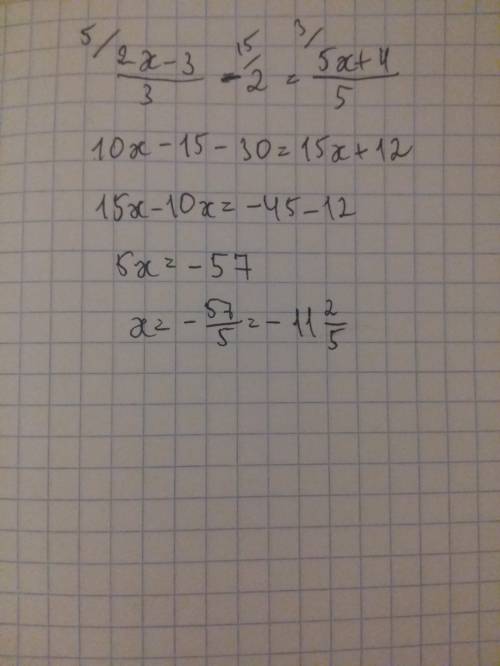 5/ (2x-3)/3 - 15/ 2 = 3/ (5x+4)/5
10x - 15 - 30 = 15x + 12
15x - 10x = - 45 - 12
5x = - 57
x = - 57/5 = - 11 2/5